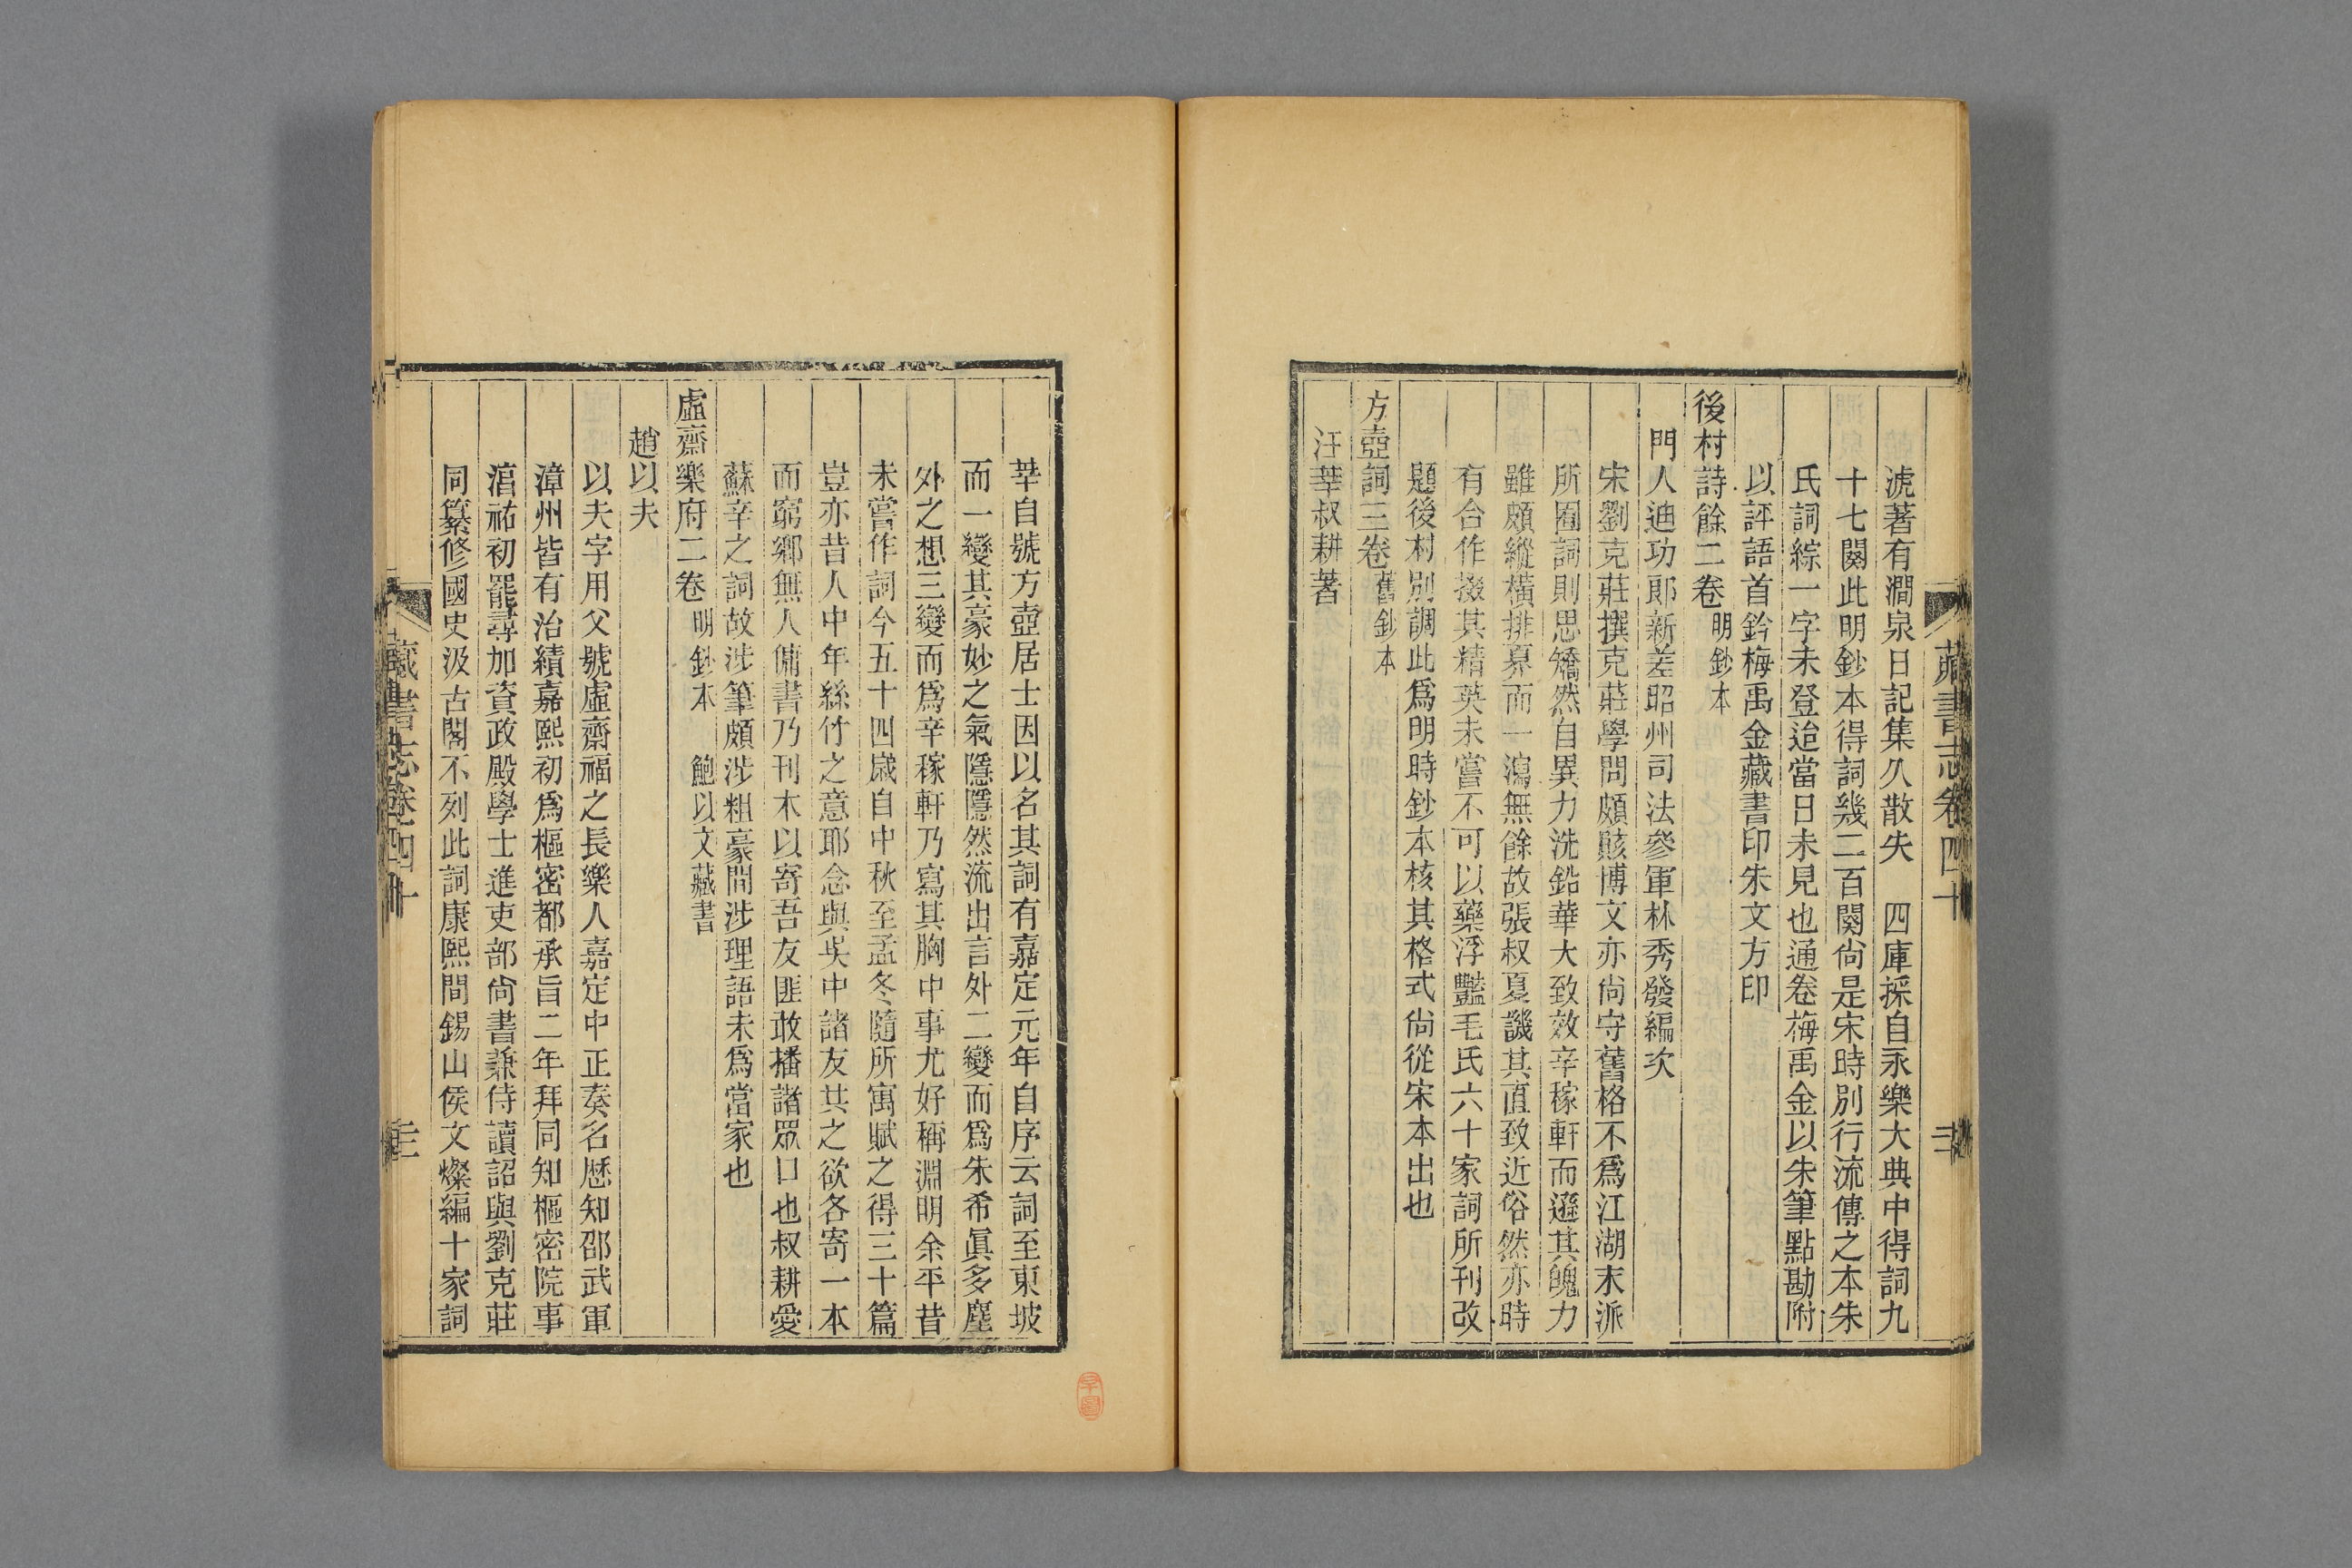 淲著有澗泉日記集久散失　四庫採自永樂大典中得詞九
十七闋此明鈔本得詞幾二百闋尙是宋時別行流傳之本朱
氏詞綜一字未登迨當日未見也通卷梅禹金以朱筆點勘附
以評語首鈐梅禹金藏書印朱文方印
後村詩餘二卷 明鈔本
門人迪功郞新差昭州司法參軍林秀發編次
宋劉克莊撰克莊學問頗賅博文亦尙守舊格不爲江湖末派
所囿詞則思矯然自異力洗鉛華大致效辛稼軒而遜其魄力
雖頗縱橫排奡而一瀉無餘故張叔夏譏其直致近俗然亦時
有合作掇其精英未嘗不可以藥浮豔毛氏六十家詞所刊改
題後村別調此爲明時鈔本核其格式尙從宋本出也
方壺詞三卷 舊鈔本
汪莘叔耕著
藏書志卷四十
莘自號方壺居士因以名其詞有嘉定元年自序云詞至東坡
而一變其豪妙之氣隱隱然流出言外二變而爲朱希眞多塵
外之想三變而爲辛稼軒乃寫其胸中事尤好稱淵明余平昔
未嘗作詞今五十四歲自中秋至孟冬隨所寓賦之得三十篇
豈亦昔人中年絲竹之意耶念與吳中諸友共之欲各寄一本
而窮鄉無人傭書乃刊木以寄吾友匪敢播諸眾口也叔耕愛
蘇辛之詞故涉筆頗涉粗豪間涉理語未爲當家也
虛齋樂府二卷 明鈔本　鮑以文藏書
趙以夫
以夫字用父號虛齋福之長樂人嘉定中正奏名歷知邵武軍
漳州皆有治績嘉熙初爲樞密都承旨二年拜同知樞密院事
湻祐初罷尋加資政殿學士進吏部尙書兼侍讀詔與劉克莊
同纂修國史汲古閣不列此詞康熙間錫山侯文燦編十家詞
藏書志卷四十